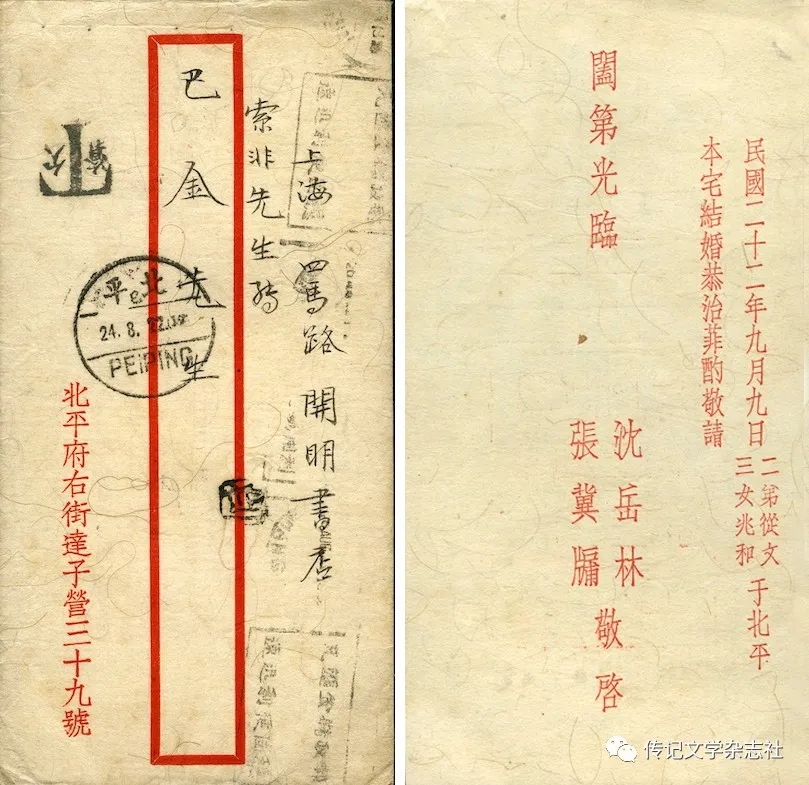 上海四馬路開明書店
索非先生轉
巴金先生
北平
24.8.22
PEIPING
欠資
北平府右街達子營三十九號
民國二十二年九月九日
二弟從文
三女兆和
于北平
本宅結婚恭治菲酌敬請
闔第光臨
沈岳林
張冀牖
敬啓
传记文学杂志社